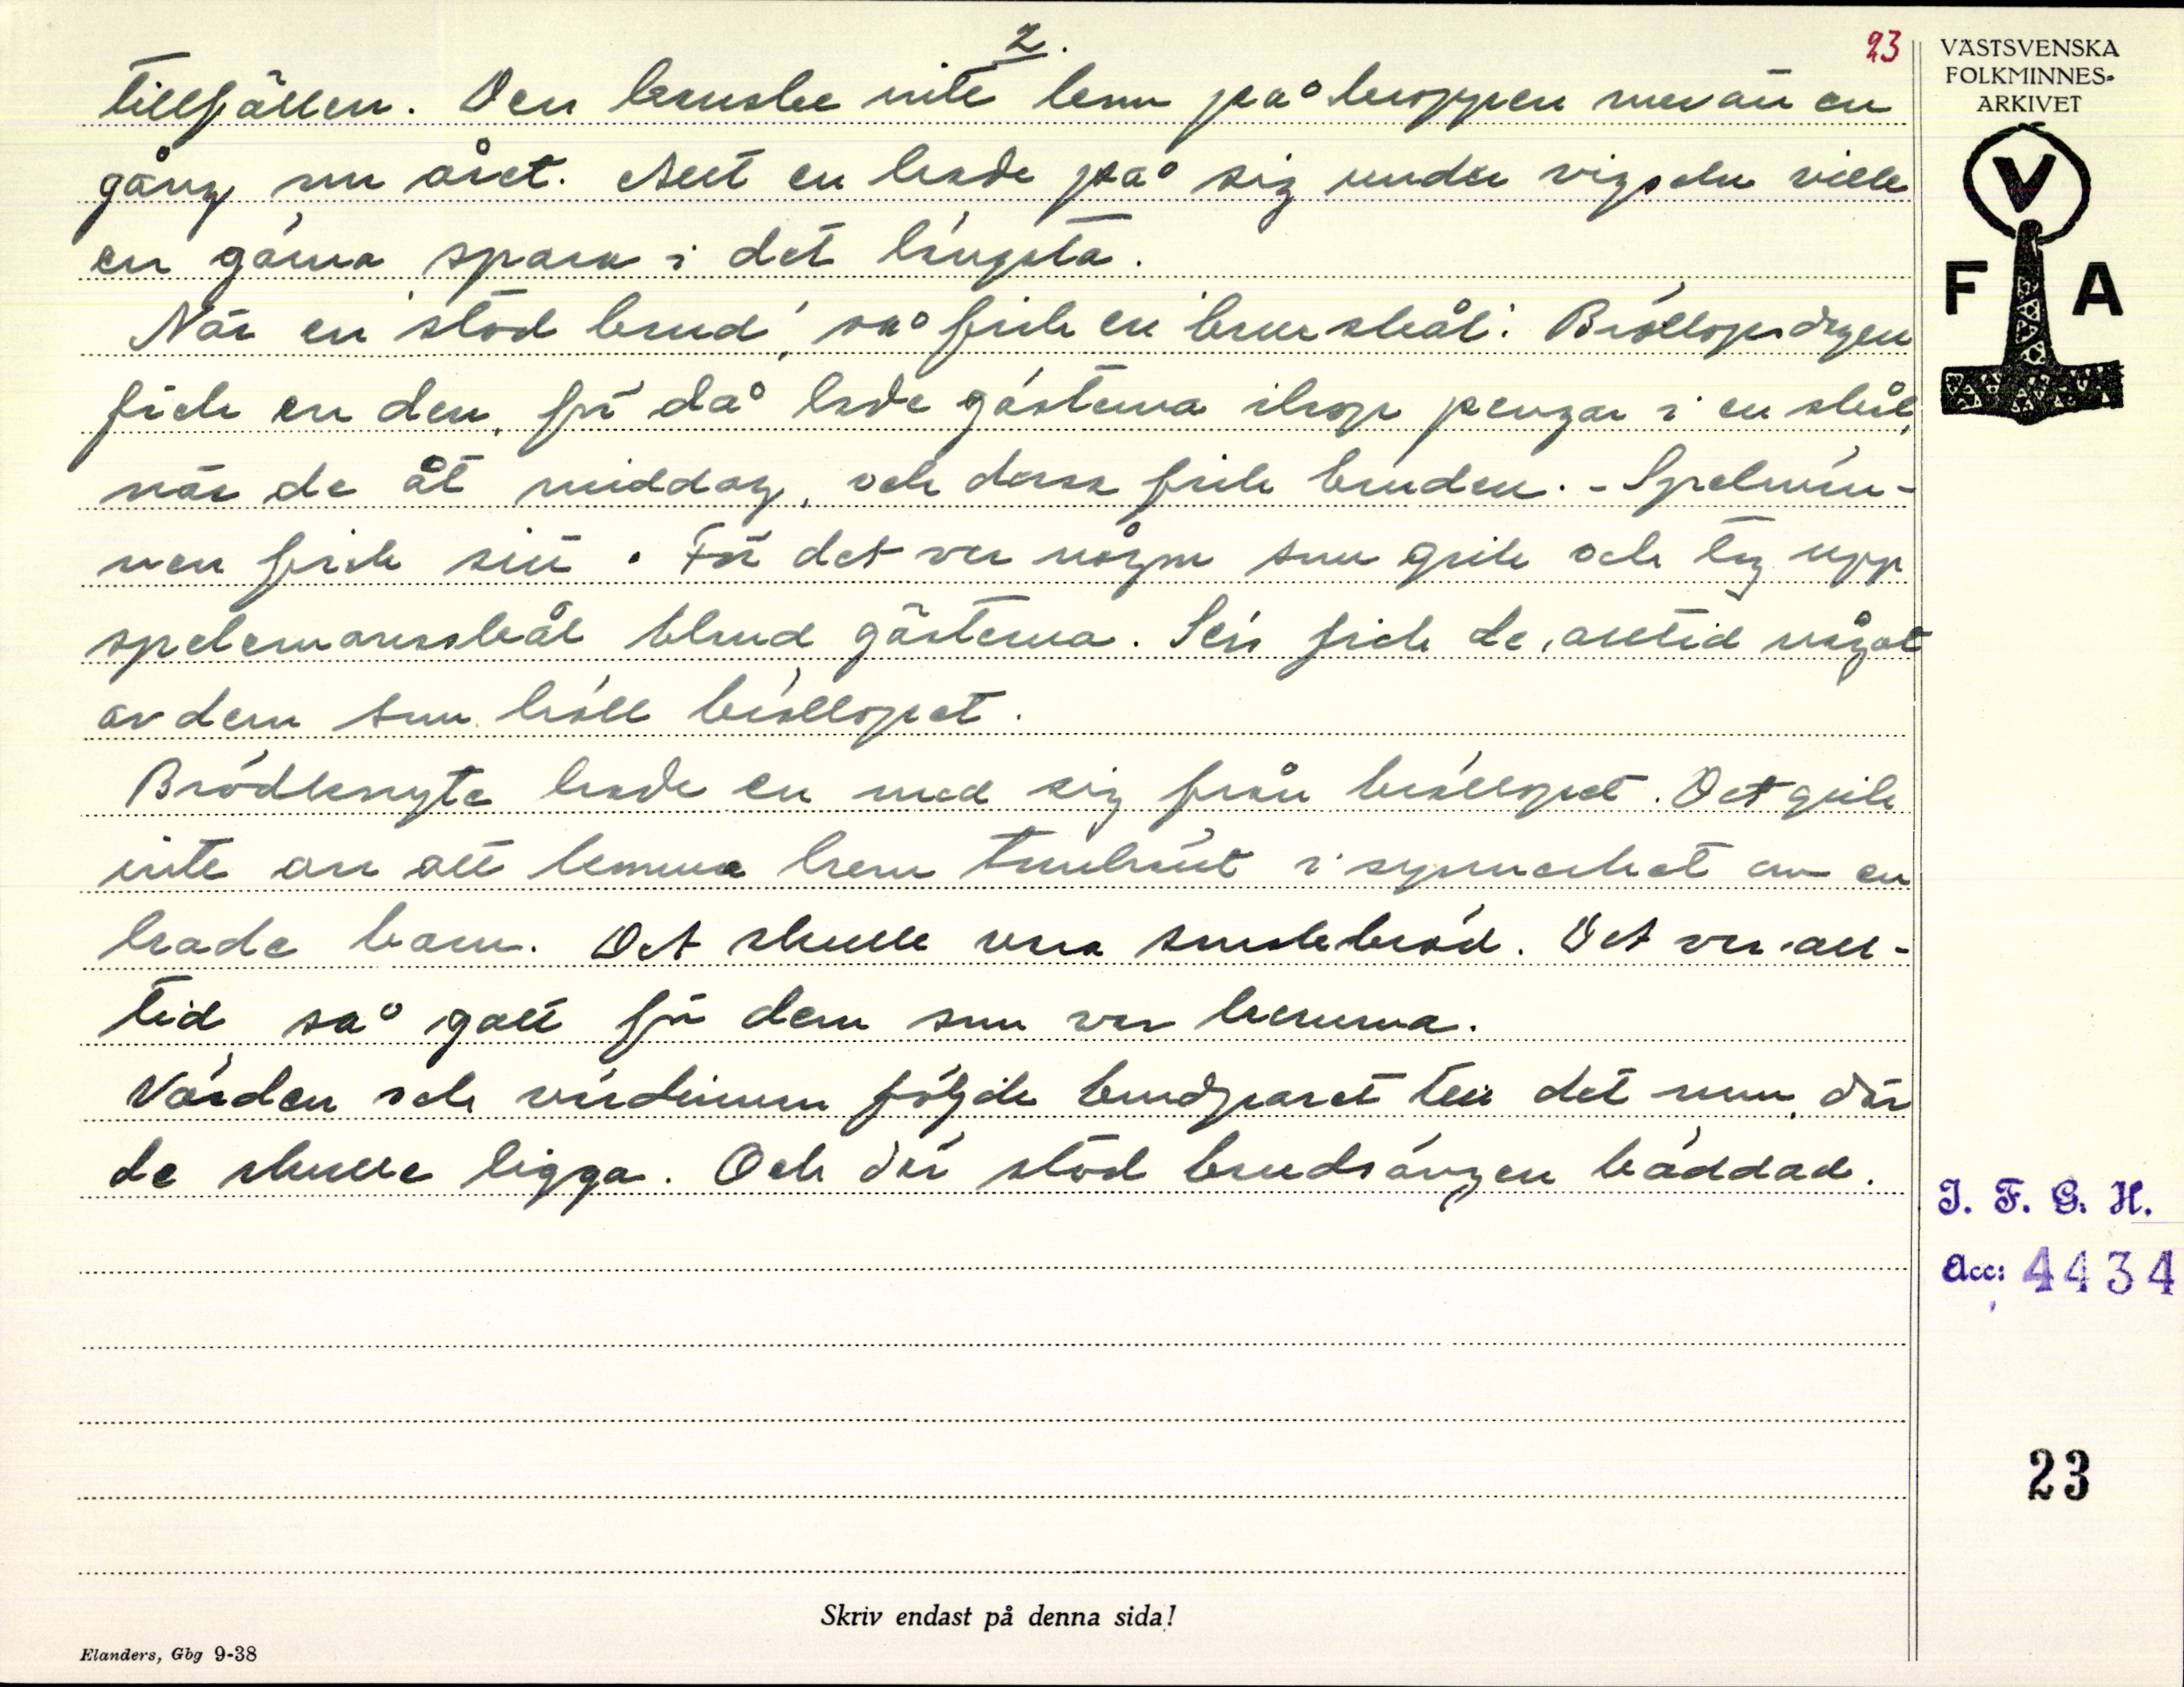 2.
23
tillfällen. Den kanske inte kom på kroppen mer än en
gång om året. Allt en hade på sig under vigseln ville
en gärna spara i det längsta.
När en "stod brud", så fick en "bruskål". Bröllopsdagen
fick en den, för då lade gästerna ihop pengar i en skål,
när de åt middag, och dänn fick bruden. - Spelmän-
nen fick sitt. För det var någon som gick och tog upp
spelemansskål bland gästerna. Sen fick de alltid något
av dem som höll bröllopet.
Brödknyte hade en med sig från bröllopet. Det gick
inte an att komma hem tomhänt i synnerhet om en
hade barn. Det skulle vara smakebröd. Det var all-
tid så gott för dem som var hemma.
Värden och värdinnan följde brudparet till det rum, där
de skulle ligga. Och där stod brudsängen bäddad.
VÄSTSVENSKA
FOLKMINNES-
ARKIVET
V
F A
I. F. G. H.
Acc: 4434
23
Skriv endast på denna sida!
Elanders, Gbg 9-38